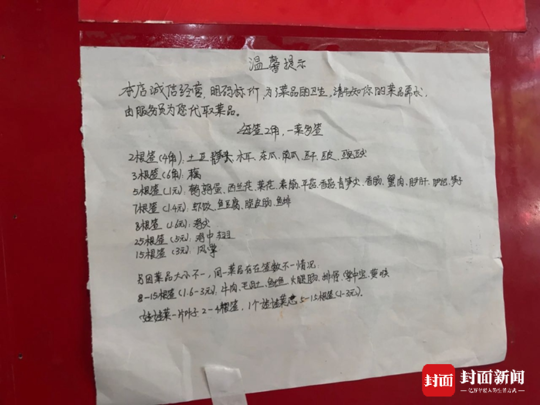 温馨提示
本店诚信经营,明码标价,为了菜品的卫生,请告知你的菜品需求,
由服务员为您代取菜品。
每签2角,一菜多签
2根签(4角),土豆 木耳、冬瓜、南瓜、豆干、豆皮、
3根签(6角)藕
5根签(1元)鹌鹑蛋、西兰花、菜花、素肠、平菇、香菇、青笋尖、香肠、蟹肉、
7根签(1.4元),虾饺、鱼豆腐、脆皮肠、
8根签(1.6元),
25根签(5元),
15根签(3元),凤掌
另因菜品大小不一,同一菜品存在签数不一情况
8-15根签(1.6-3元),牛肉、毛肚、鱿鱼、火腿肠、排骨、
2-4根签,1个 5-15根签(1-3元)。
封面 封面新闻
亿万年轻人的生活方式